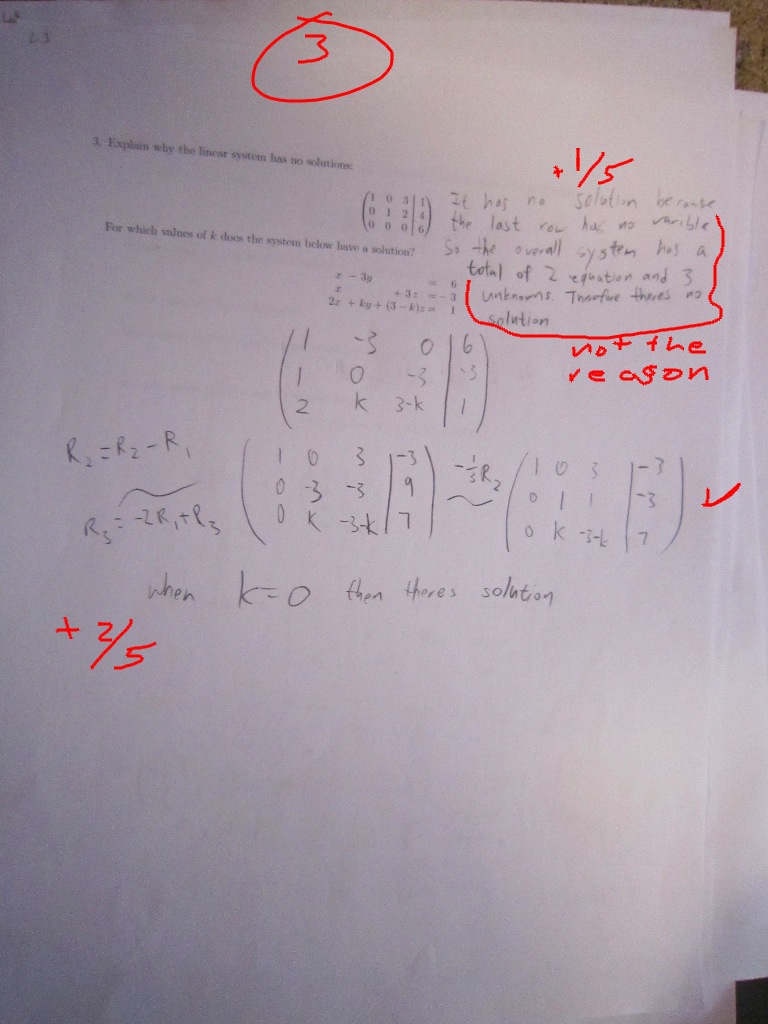 3
3. Explain why the linear system has no solutions:
+1/5
1 0 3 | 1
0 1 2 | 4
0 0 0 | 6
It has no solution because
the last row has no varible
So the overall system has a
total of 2 equation and 3
unknowns. Therefore theres no
solution
not the
reason
For which values of k does the system below have a solution?
x − 3y = 6
x + 3z = −3
2x + ky + (3 − k)z = 1
1 -3 0 | 6
1 0 -3 | -3
2 k 3-k | 1
R2 = R2 - R1
R3 = -2R1 + R3
1 0 3 | -3
0 -3 -3 | 9
0 k -3-k | 7
-1/3 R2
1 0 3 | -3
0 1 1 | -3
0 k -3-k | 7
when k=0 then theres solution
+2/5